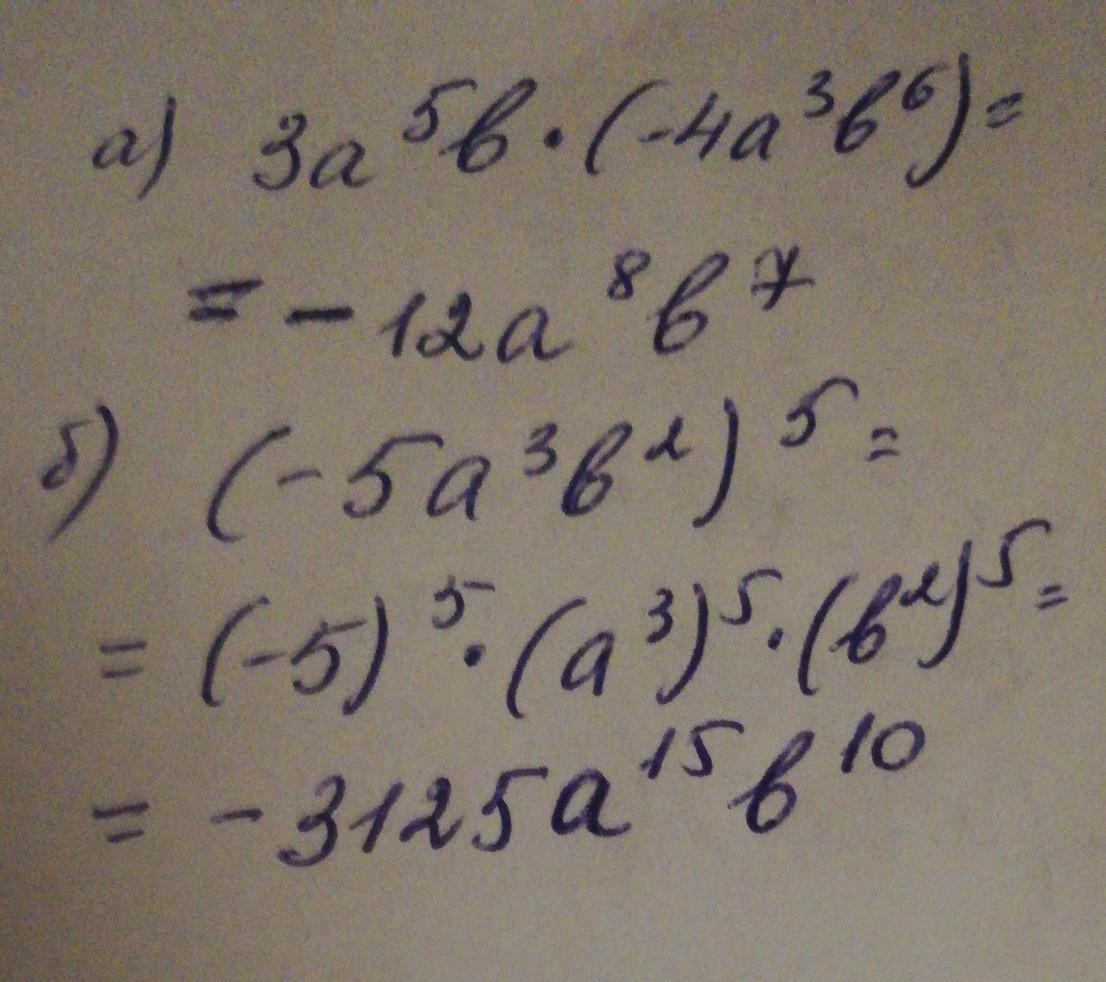 а) 3a⁵b · (-4a³b⁶) =
= - 12a⁸b⁷
б) (-5a³b²)⁵ =
= (-5)⁵ · (a³)⁵ · (b²)⁵ =
= - 3125a¹⁵b¹⁰